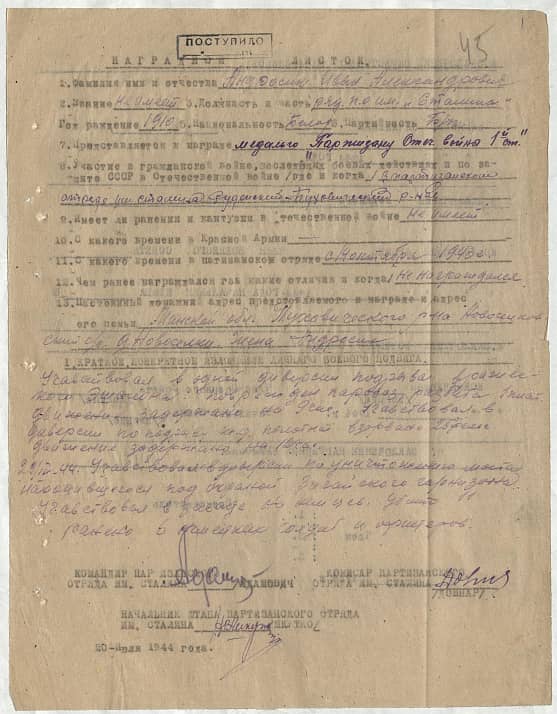 ПОСТУПИЛО
45
НАГРАДНОЙ ЛИСТОК.
1.Фамилия имя и отчество Андросик Иван Александрович
2.Звание не имеет 3.Должность и часть ряд. п.о им. "Сталина"
Год рождения 1910 5.Национальность Белор. 6.Партийность
7.Представляется к награде медалью "Партизану Отеч. война 1й ст."
8.Участие в гражданской войне, последующих боевых действиях и по за-
щите СССР в Отечественной войне /где и когда/ В партизанском
отряде им Сталина Руденский Пуховический р-н
9.Имеет ли ранения и кантузии в отечественной войне не имеет
10.С какого времени в Красной Армии —
11.С какого времени в патизанском отряде с октября 1943 г.
12.Чем ранее награждался за какие отличия и когда Не награждался.
13.Постоянный домашний адрес представляемого к награде и адрес
его семьи Минская обл. Пуховического р-на Новоселков
ский с/с д. Новоселки. Жена Андросик
1 КРАТКОЕ КОНКРЕТНОЕ ИЗЛОЖЕНИЕ ЛИЧНОГО БОЕВОГО ПОДВИГА.
Участвовал в одной диверсии подрыва вражес-
кого эшелона. Поврежден паровоз, разбита 1 плат.
Движение задержано на часа. Участвовал в
диверсии по подрыву жд полотна взорвано 25
движение задержано на часов.
44. Участвовал в диверсии по уничтожению моста
находившегося под охраной гарнизона.
Участвовал в засаде на немцев. Убито 11
ранено 2 немецких солдат и офицеров.
КОМАНДИР ПАРТИЗАНСКОГО
ОТРЯДА ИМ. СТАЛИНА АДАМОВИЧ
КОМИСАР ПАРТИЗАНСКОГО
ОТРЯДА ИМ. СТАЛИНА
/ДОВНАР/
НАЧАЛЬНИК ШТАБА ПАРТИЗАНСКОГО ОТРЯДА
ИМ. СТАЛИНА
20 июля 1944 года.